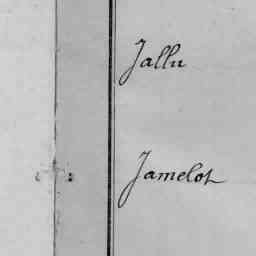 Jallu
Jamelot